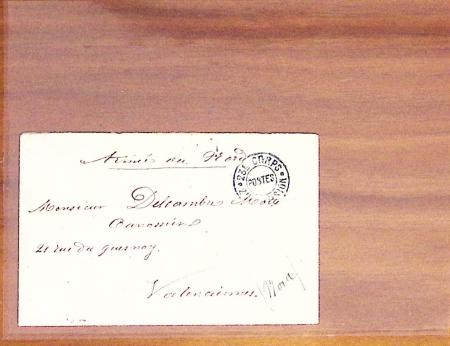 Armée du Nord
23E CORPS
POSTES
Monsieur Delcambre
21 rue du quesnoy.
Valenciennes. (Nord)